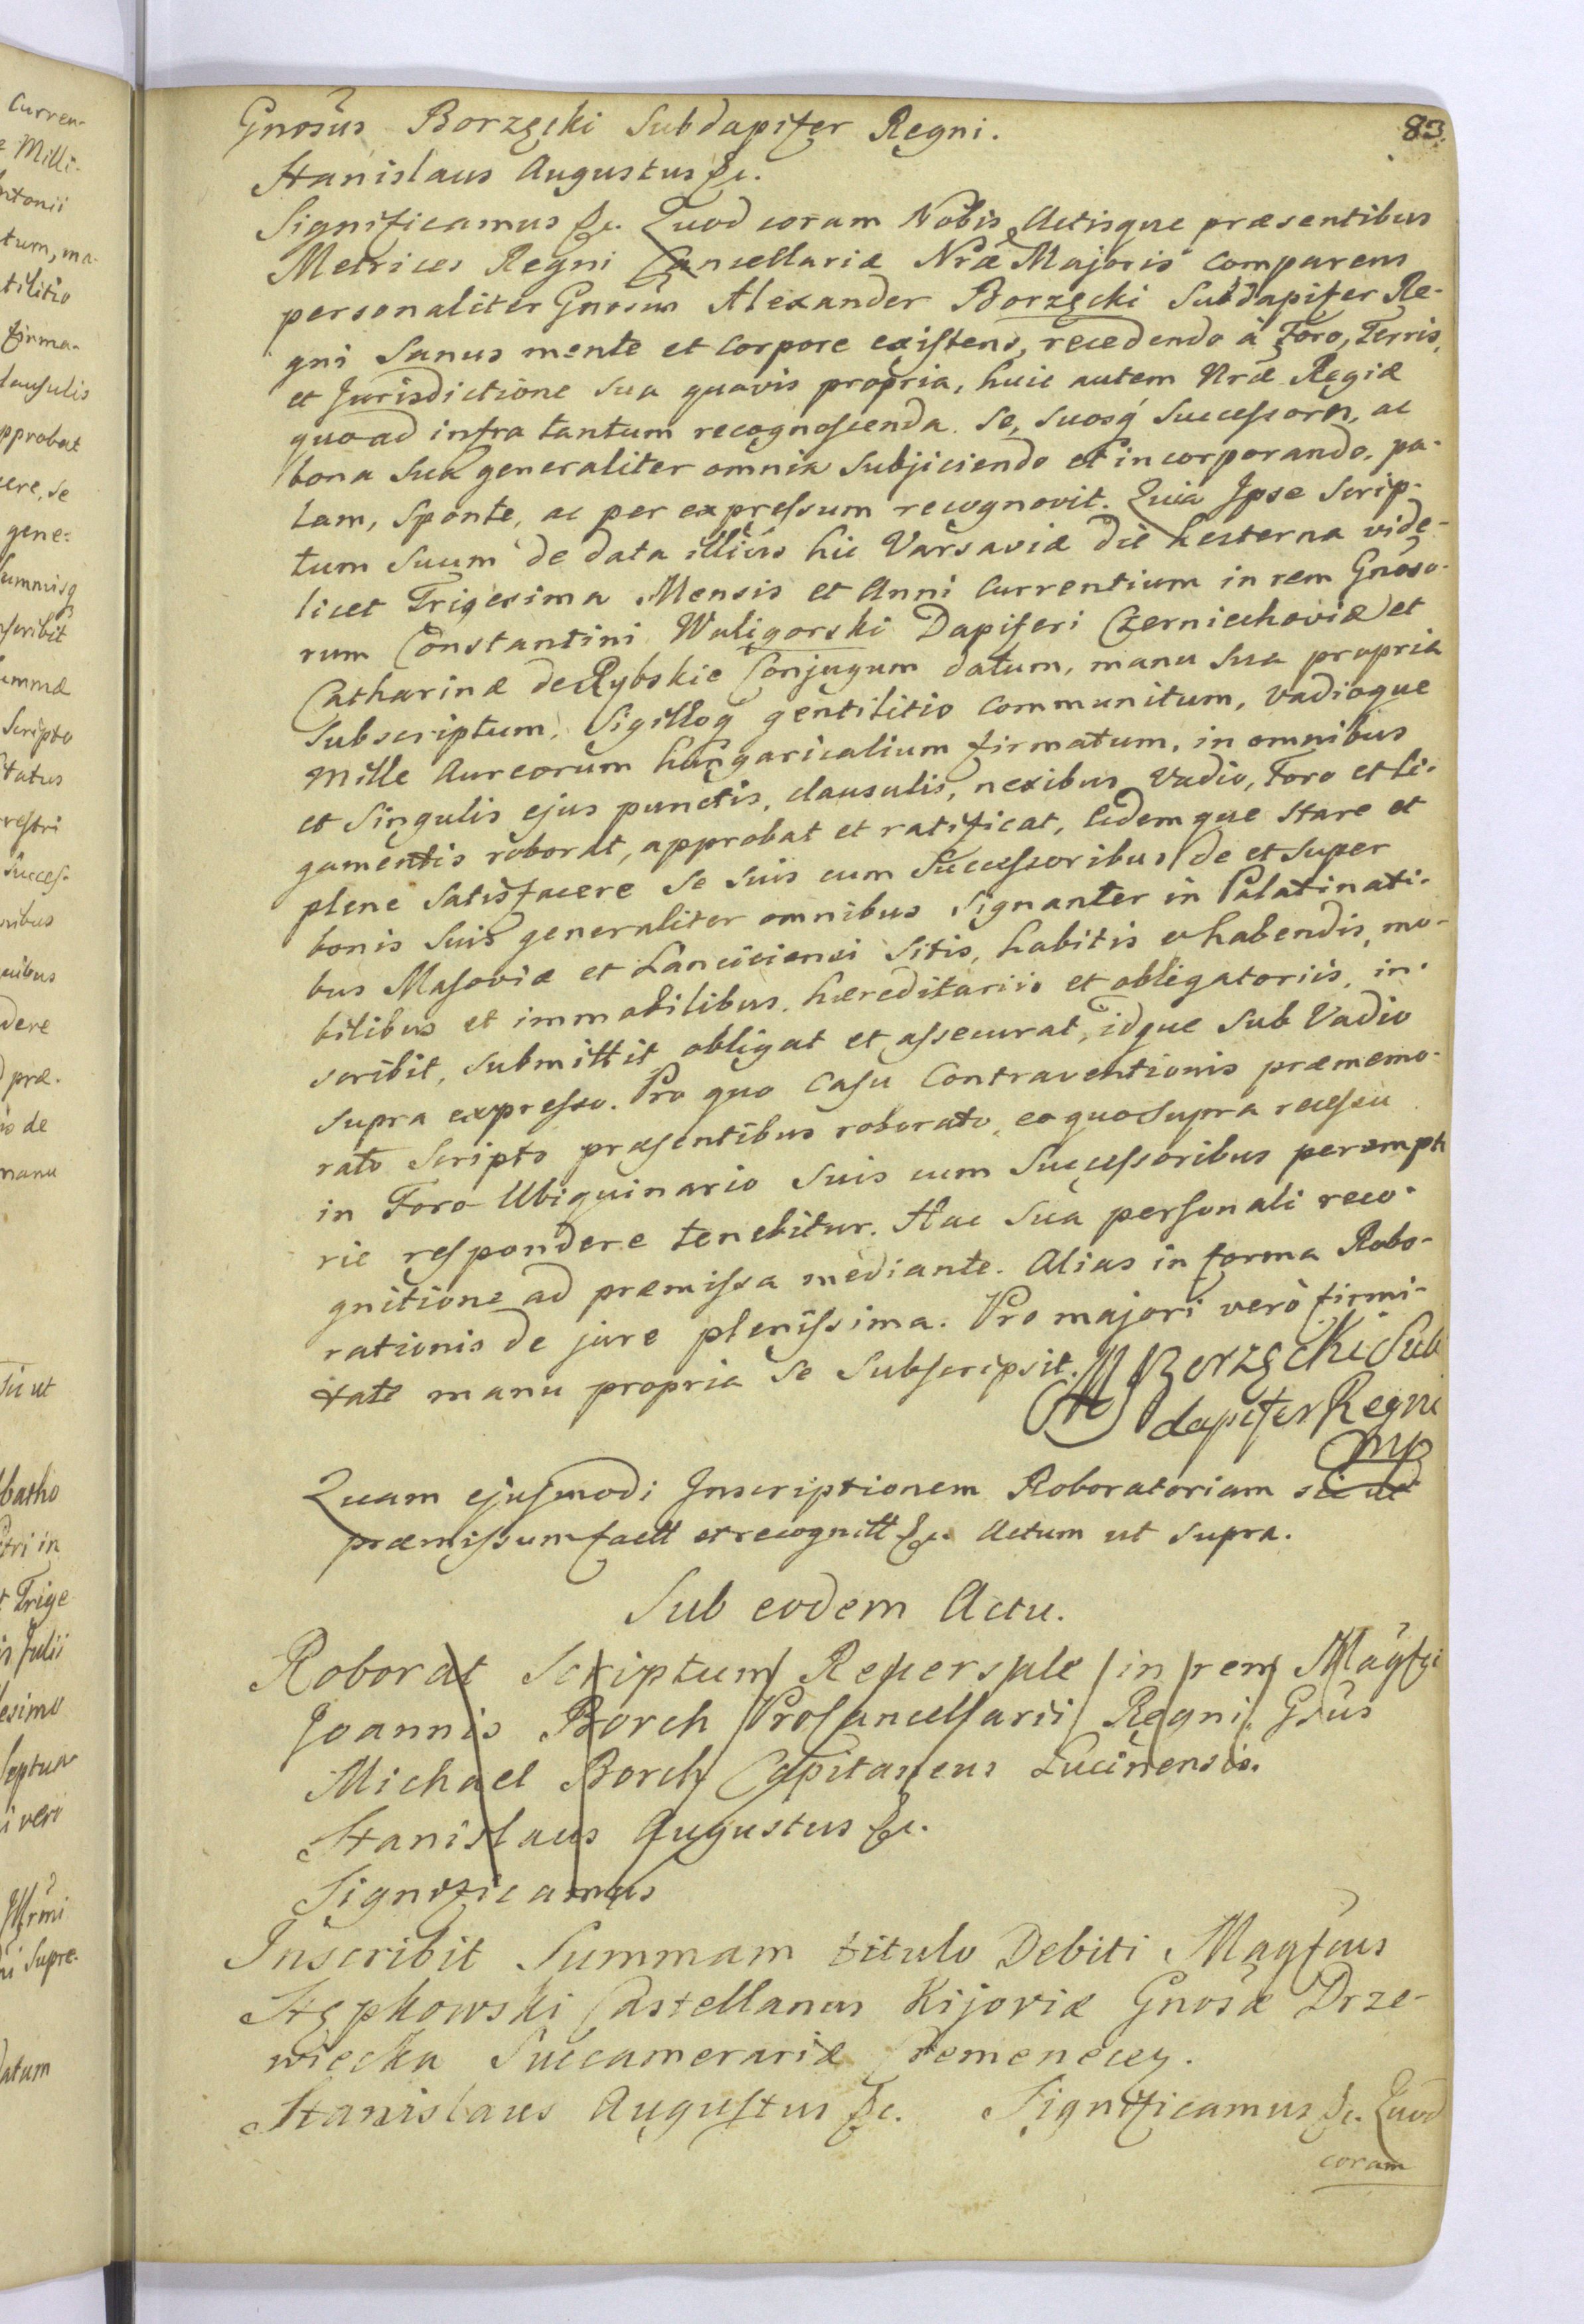 83.
Gnosus Borzęcki Subdapifer Regni.
Stanislaus Augustus &c.
Significamus &c. Quod coram Nobis Actisque præsentibus
Metrices Regni Cancellariæ Nræ Majoris comparens
personaliter Gnosus Alexander Borzęcki Subdapifer Re-
gni Sanus mente et corpore existens, recedendo à Foro, Terris,
et Jurisdictione sua quavis propria, huic autem Nræ Regiæ
quoad infra tantum recognoscenda se, suosq successores, ac
bona sua generaliter omnia subjiciendo et incorporando, pa-
lam, sponte, ac per expressum recognovit. Quia Ipse Scrip-
tum suum de data illius hic Varsaviæ die hesterna vide-
licet Trigesima Mensis et Anni currentium in rem Gnoso-
rum Constantini Waligorski Dapiferi Czerniechoviæ et
Catharinæ de Rybskie Conjugum datum, manu sua propria
subscriptum, Sigilloq gentilitio communitum, vadioque
Mille Aureorum hungaricalium firmatum, in omnibus
et singulis ejus punctis, clausulis, nexibus, Vadio, Foro et li-
gamentis roborat, approbat et ratificat, Eidemque stare et
plene satisfacere se suis cum Successoribus de et super
bonis suis generaliter omnibus signanter in Palatinati-
bus Masoviæ et Lanciciensi sitis, habitis et habendis, mo-
bilibus et immobilibus, hæreditariis et obligatoriis, in-
scribit, submittit obligat et assecurat, idque sub Vadio
supra expresso. Pro quo casu Contraventionis præmemo-
rato Scripto præsentibus roborato, eo quo supra recessu
in Foro Ubiquinario suis cum Successoribus perempto
rie respondere tenebitur. Hac sua personali reco-
gnitione ad præmissa mediante. Alias in forma Robo-
rationis de jure plenissima. Pro majori verò firmi-
tate manu propria se subscripsit. Borzęcki Sub
dapifer Regni
mp
Quam ejusmodi Inscriptionem Roboratoriam sic ut
præmissum factt et recognitt &c. Actum ut supra.
Sub eodem Actu.
Roborat Scriptum Reversale in rem Magfci
Joannis Borch Procancellarii Regni, Gsus
Michael Borch Capitaneus Lucinensis.
Stanislaus Augustus &c.
Significamus
Inscribit Summam titulo Debiti Magfcus
Stępkowski Castellanus Kijoviæ Gnosæ Drze-
wiecka Succamerariæ Cremenecen.
Stanislaus Augustus &c. Significamus &c. Quod
coram